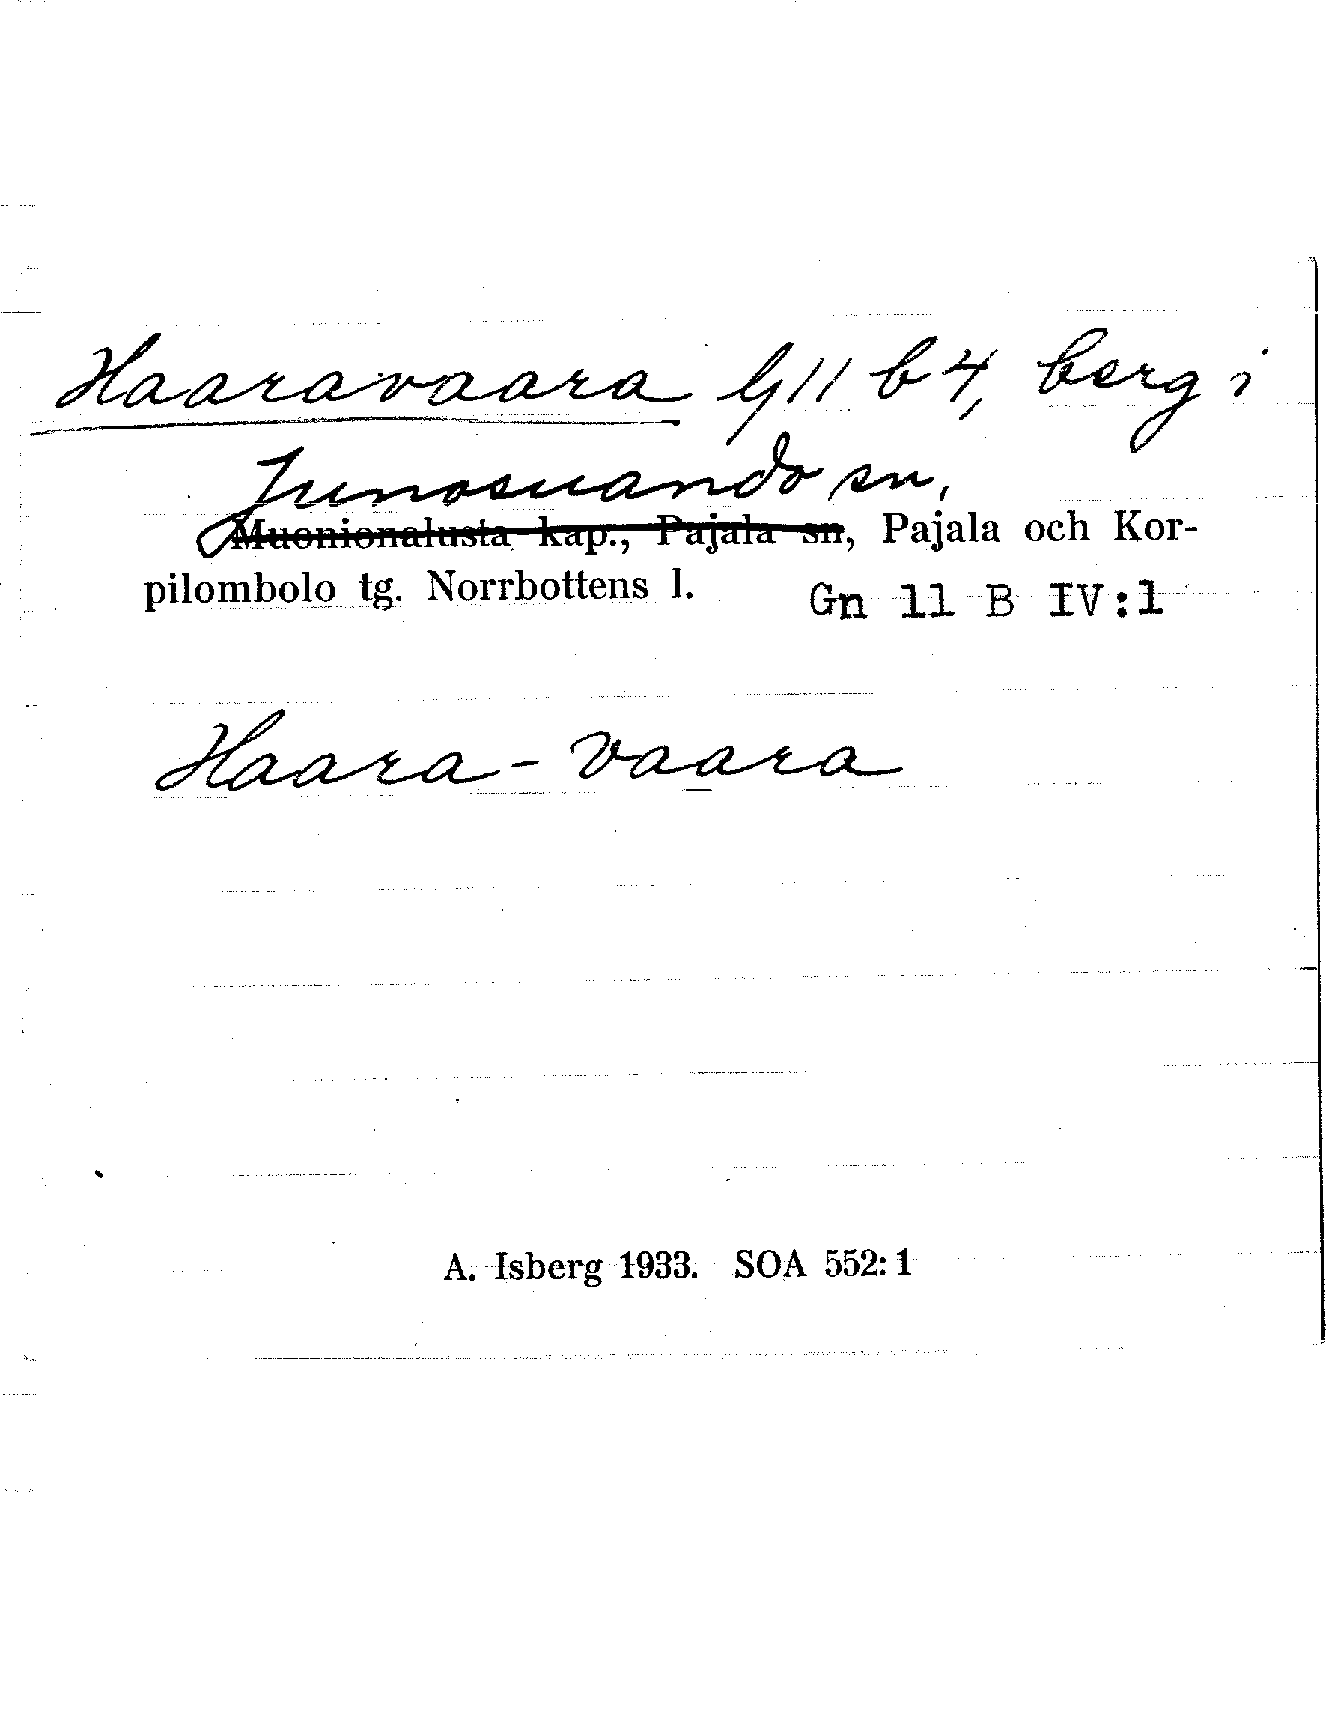 Haaravaara G11 b 4, berg i
Junosuando sn,
Muonionalusta kap., Pajala sn, Pajala och Kor-
pilombolo tg. Norrbottens l. Gn 11 B IV:1
Haara-vaara
A. Isberg 1933. SOA 552:1